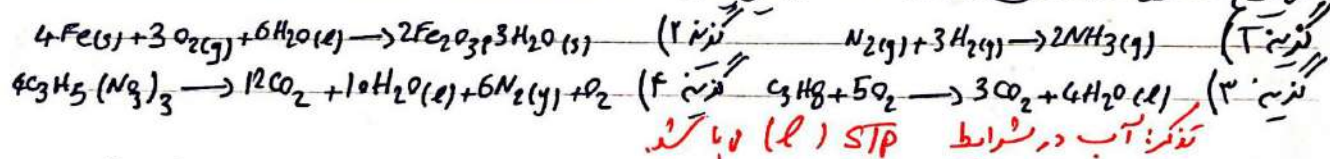 گزینه ۱) N2(g)+3H2(g)→2NH3(g) گزینه ۲) 4Fe(s)+3O2(g)+6H2O(l)→2Fe2O3,3H2O(s)
گزینه ۳) C3H8+5O2→3CO2+4H2O(l) گزینه ۴) 4C3H5(NO3)3→12CO2+10H2O(l)+6N2(g)+O2
تذکر: آب در شرایط STP (l) می باشد.